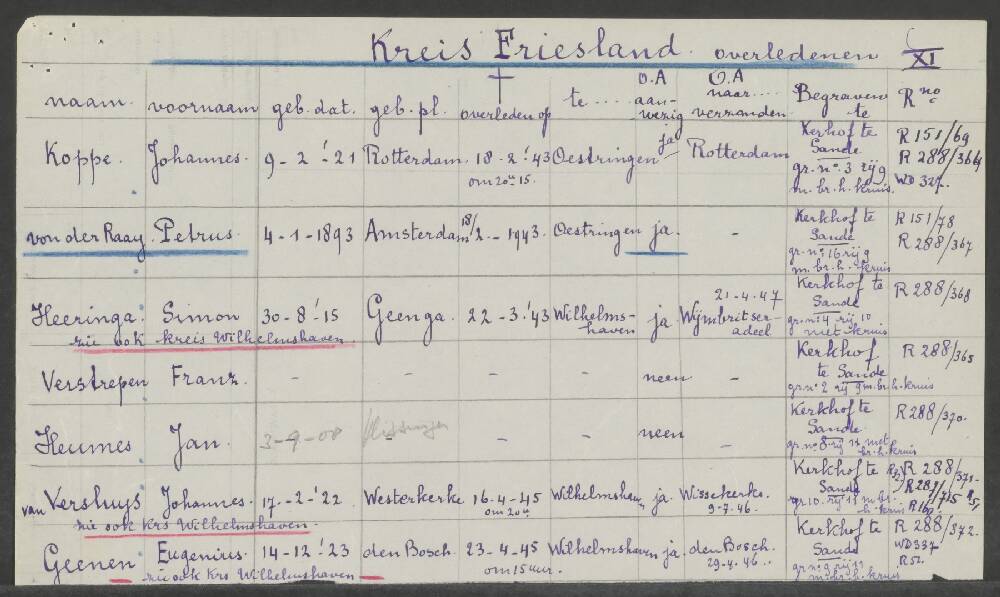 Kreis Friesland. overledenen XI
naam. voornaam geb. dat. geb. pl. † overleden op te .... O.A aan-wezig O.A naar.... verzonden Begraven te R no
Koppe. Johannes. 9-2-'21 Rotterdam. 18-2-'43 Oestringen ja Rotterdam Kerhof te R 151/69
Sande R 288/364
om 20 u 15. gr. no. 3 rij 9 WD 327.
m. br. h. kruis.
von der Raay. Petrus. 4-1-1893 Amsterdam 18/2-1943. Oestringen ja. - Kerkhof te R 151/78
Sande R 288/367
gr. no 16 rij 9
m. br. h. kruis
Heeringa. Simon 30-8-'15 Geenga. 22-3-'43 Wilhelms-haven ja 21-4-47 Wijmbritser-adeel Kerkhof te R 288/368
Sande
zie ook kreis Wilhelmshaven. gr. no 4 rij 10
met kruis
Verstrepen Franz. - - - - neen - Kerkhof R 288/365
te Sande
gr. no 2 rij 9 m. br. h. kruis
Heumes Jan. 3-9-08 Vlissingen - - neen Kerkhof te R 288/370.
Sande
gr. no 8 rij 11 met
br. h. kruis
van Versluys Johannes. 17-2-'22 Westerkerke 16-4-45 Wilhelmshav. ja Wissekerke. Kerkhof te R 288/371.
om 20 u 9-7-46. Sande
zie ook Krs Wilhelmshaven. gr 10. rij 11
h. kruis
Geenen Eugenius. 14-12-'23 den Bosch. 23-4-45 Wilhelmshaven ja. den Bosch. Kerkhof te R 288/372.
om 15 uur. 29-4-46. Sande WD 337
zie ook Krs Wilhelmshaven gr no 9 rij 11 R 52.
m. br. h. kruis